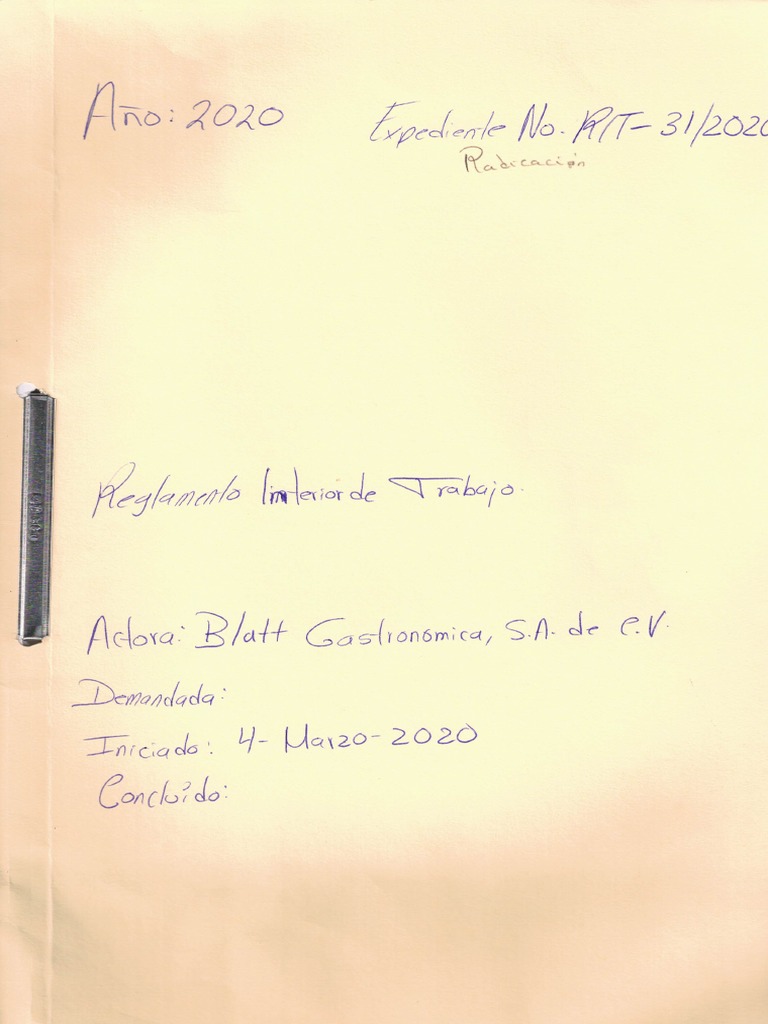 Año: 2020
Expediente No. RIT-31/2020
Radicación
Reglamento Interior de Trabajo.
Actora: Blatt Gastronomica, S.A. de C.V.
Demandada:
Iniciado: 4-Marzo-2020
Concluído: